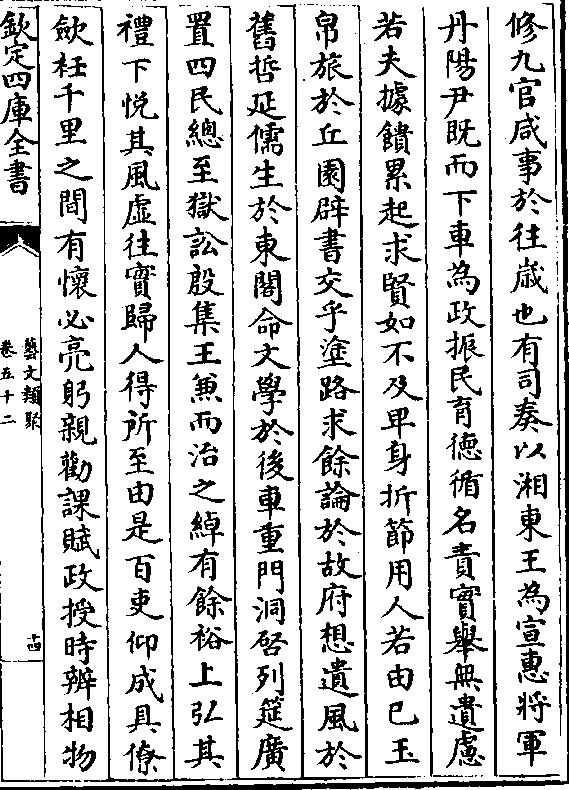 修九官咸事於往歳也有司奏以湘東王為宣惠將軍
丹陽尹既而下車為政振民育德循名責實舉無遺慮
若夫據饋累起求賢如不及卑身折節用人若由已玉
帛旅於丘園辟書交乎塗路求餘論於故府想遺風於
舊哲延儒生於東閤命文學於後車重門洞啓列筵廣
置四民總至獄訟殷集王兼而治之綽有餘裕上弘其
禮下悦其風虛往實歸人得所至由是百吏仰成具僚
斂衽千里之間有懷必亮躬親勸課賦政授時辨相物
欽定四庫全書
藝文類聚
卷五十二
十四